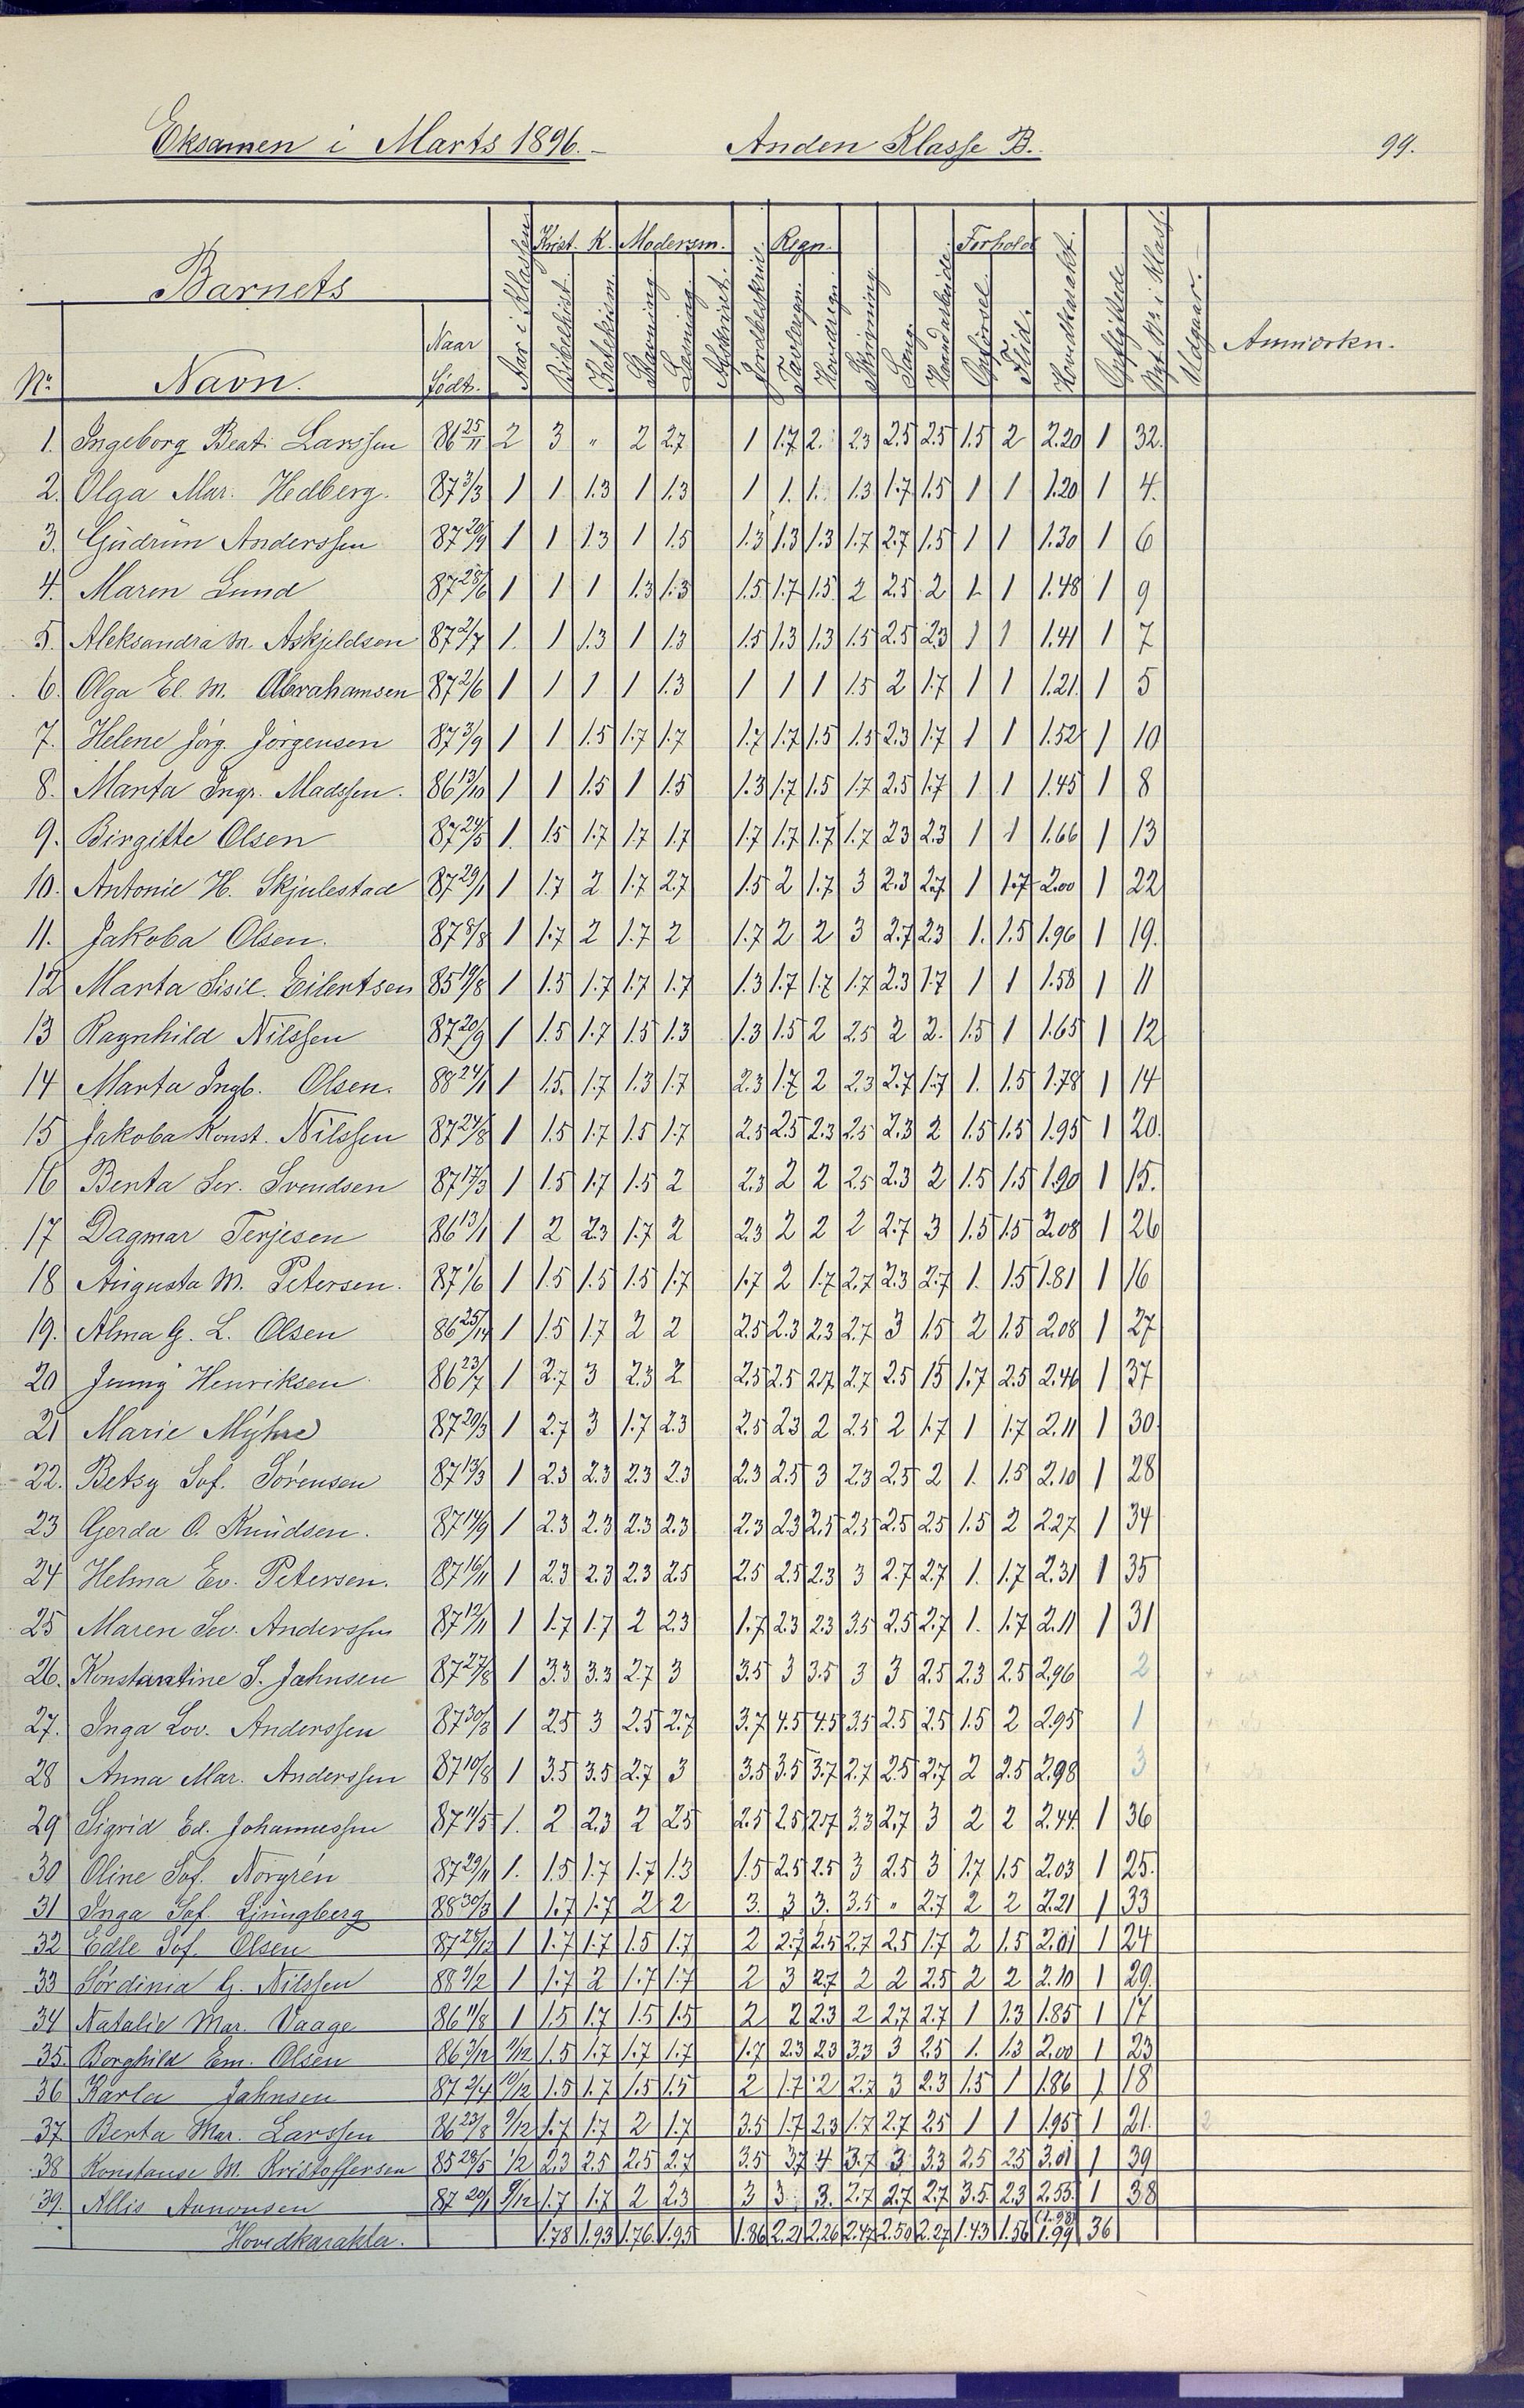 Eksamen i Marts 1896.- Anden Klasse B. 99.
Krist. K. Modersm. Regn. Forhold
Barnets
No. Navn. Naar Födt. Aar i Klassen Bibelhist. Katekism. Stavning Læsning Jordbeskriv. Tavleregn. Hovedregn. Skrivning Sang Haandarbeide Opförsel Flid. Hovedkarakt. Opflyttede Nyt No. i Klass. Udgaar. Anmærkn.
1. Ingeborg Beat. Larssen 86 25/11 2 3 " 2 2.7 1 1.7 2. 2.3 2.5 2.5 1.5 2 2.20 1 32.
2. Olga Mar. Hedberg. 87 3/3 1 1 1.3 1 1.3 1 1. 1. 1.3 1.7 1.5 1 1 1.20 1 4.
3. Gudrun Anderssen 87 20/9 1 1 1.3 1 1.5 1.3 1.3 1.3 1.7 2.7 1.5 1 1 1.30 1 6
4. Maren Lund 87 28/6 1 1 1 1.3 1.3 1.5 1.7 1.5 2 2.5 2 1. 1 1.48 1 9
5. Aleksandra M. Askjeldsen 87 2/7 1. 1 1.3 1 1.3 1.5 1.3 1.3 1.5 2.5 2.3 1 1 1.41 1 7
6. Olga El. M. Abrahamsen 87 2/6 1 1 1 1 1.3 1 1 1 1.5 2 1.7 1 1 1.21 1 5
7. Helene Jörg. Jörgensen 87 3/9 1 1 1.5 1.7 1.7 1.7 1.7 1.5 1.5 2.3 1.7 1 1 1.52 1 10
8. Marta Ingr. Madssen. 86 13/10 1 1 1.5 1 1.5 1.3 1.7 1.5 1.7 2.5 1.7 1 1 1.45 1 8
9. Birgitte Olsen 87 24/5 1. 1.5 1.7 1.7 1.7 1.7 1.7 1.7 1.7 2.3 2.3 1 1 1.66 1 13
10. Antonie H. Skjulestad 87 29/1 1 1.7 2 1.7 2.7 1.5 2 1.7 3 2.3 2.7 1 1.7 2.00 1 22
11. Jakoba Olsen. 87 8/8 1 1.7 2 1.7 2 1.7 2 2 3 2.7 2.3 1. 1.5 1.96 1 19.
12 Marta Sisil. Eilertsen 85 19/8 1 1.5 1.7 1.7 1.7 1.3 1.7 1.7 1.7 2.3 1.7 1 1 1.58 1 11
13 Ragnhild Nilssen 87 20/9 1 1.5 1.7 1.5 1.3 1.3 1.5 2 2.5 2 2. 1.5 1 1.65 1 12
14 Marta Ingb. Olsen. 88 24/1 1 1.5. 1.7 1.3 1.7 2.3 1.7 2 2.3 2.7 1.7 1. 1.5 1.78 1 14
15 Jakoba Konst. Nilssen 87 24/8 1 1.5 1.7 1.5 1.7 2.5 2.5 2.3 2.5 2.3 2 1.5 1.5 1.95 1 20.
16 Berta Ser. Svendsen 87 17/3 1 1.5 1.7 1.5 2 2.3 2 2 2.5 2.3 2 1.5 1.5 1.90 1 15.
17 Dagmar Terjesen 86 13/1 1 2 2.3 1.7 2 2.3 2 2 2 2.7 3 1.5 1.5 2.08 1 26
18 Augusta M. Petersen. 87 1/6 1 1.5 1.5 1.5 1.7 1.7 2 1.7 2.7 2.3 2.7 1. 1.5 1.81 1 16
19. Alma G. L. Olsen 86 25/14 1 1.5 1.7 2 2 2.5 2.3 2.3 2.7 3 1.5 2 1.5 2.08 1 27
20 Jenny Henriksen 86 23/7 1 2.7 3 2.3 2 2.5 2.5 2.7 2.7 2.5 1.5 1.7 2.5 2.46 1 37
21 Marie Myhre 87 29/3 1 2.7 3 1.7 2.3 2.5 2.3 2 2.5 2 1.7 1 1.7 2.11 1 30
22. Betsy Sof. Sörensen 87 13/3 1 2.3 2.3 2.3 2.3 2.3 2.5 3 2.3 2.5 2 1. 1.5 2.10 1 28
23 Gerda O. Knudsen. 87 14/9 1 2.3 2.3 2.3 2.3 2.3 2.3 2.5 2.5 2.5 2.5 1.5 2 2.27 1 34
24 Helma Ev. Petersen. 87 16/11 1 2.3 2.3 2.3 2.5 2.5 2.5 2.3 3 2.7 2.7 1. 1.7 2.31 1 35
25 Maren Sev. Anderssen 87 12/11 1 1.7 1.7 2 2.3 1.7 2.3 2.3 3.5 2.5 2.7 1. 1.7 2.11 1 31
26. Konstantine S. Jahnsen 87 27/8 1 3.3 3.3 2.7 3 3.5 3 3.5 3 3 2.5 2.3 2.5 2.96 2
27. Inga Lov. Anderssen 87 30/3 1 2.5 3 2.5 2.7 3.7 4.5 4.5 3.5 2.5 2.5 1.5 2 2.95 1
28 Anna Mar. Anderssen 87 10/8 1 3.5 3.5 2.7 3 3.5 3.5 3.7 2.7 2.5 2.7 2 2.5 2.98 3
29 Sigrid Ed. Johannessen 87 11/5 1. 2 2.3 2 2.5 2.5 2.5 2.7 3.3 2.7 3 2 2 2.44 1 36
30 Oline Sof. Norgrén 87 29/11 1. 1.5 1.7 1.7 1.3 1.5 2.5 2.5 3 2.5 3 1.7 1.5 2.03 1 25.
31 Inga Sof. Ljungberg 88 30/3 1 1.7 1.7 2 2 3. 3 3. 3.5 " 2.7 2 2 2.21 1 33
32 Edle Sof. Olsen 87 28/12 1 1.7 1.7 1.5 1.7 2 2.7 2.5 2.7 2.5 1.7 2 1.5 2.01 1 24
33 Sördinia G. Nilssen 88 3/2 1 1.7 2 1.7 1.7 2 3 2.7 2 2 2.5 2 2 2.10 1 29.
34 Natalie Mar. Vaage 86 11/8 1 1.5 1.7 1.5 1.5 2 2 2.3 2 2.7 2.7 1 1.3 1.85 1 17
35. Borghild Em. Olsen 86 3/12 9/12 1.5 1.7 1.7 1.7 1.7 2.3 2.3 3.3 3 2.5 1. 1.3 2.00 1 23
36 Karla Jahnsen 87 2/4 10/12 1.5 1.7 1.5 1.5 2 1.7 2 2.7 3 2.3 1.5 1 1.86 1 18
37 Berta Mar. Larssen 86 23/8 9/12 1.7 1.7 2 1.7 3.5 1.7 2.3 1.7 2.7 2.5 1 1 1.95 1 21.
38 Konstanse M. Kristoffersen 85 28/5 1/2 2.3 2.5 2.5 2.7 3.5 3.7 4 3.7 3 3.3 2.5 2.5 3.01 1 39
39. Allis Aanonsen 87 20/1 9/12 1.7 1.7 2 2.3 3 3 3. 2.7 2.7 2.7 3.5 2.3 2.53 1 38
Hovedkarakter. 1.78 1.93 1.76 1.95 1.86 2.21 2.26 2.47 2.50 2.27 1.43 1.56 (1.98) 1.99 36